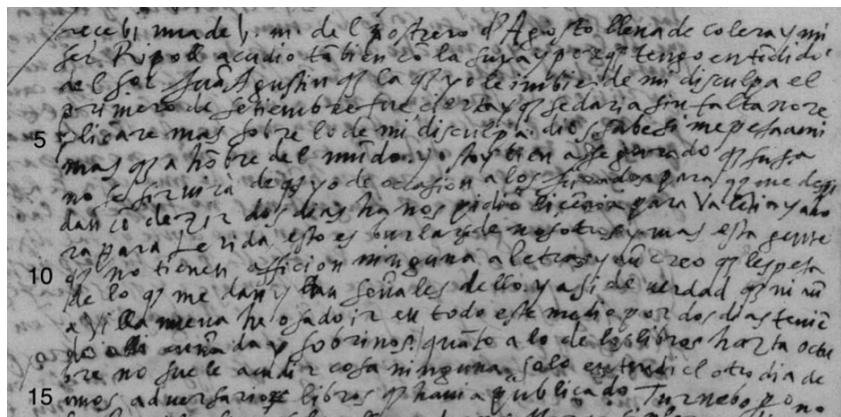 recebi una de V. m. del postrero d'Agosto llena de colera y mi
ser Ripoll acudio tābien cō la suya y porqȝ tengo entēdido
del Sor Juā Agustin qȝ la qȝ yo le imbie de mi disculpa el
primero de setiembre fue cierta y qȝ se daria sin falta no re
5 plicare mas sobre lo de mi disculpa. dios sabe si me pesa a mi
mas qȝ a hōbre del mūdo. yo stoy bien assegurado qȝ
no se servira de qȝ yo de ocasion a los para qȝ me despi
dan cō dezir dos dias ha nos pidio licēcia para Valēcia y aho
ra para Lerida, esto es burlarse de nosotros y mas esta gente
10 qȝ no tienen afficion ninguna a letras y aū creo qȝ les pesa
de lo qȝ me dan y dan señales dello. y asi de verdad qȝ ni aū
a Villanueva he osado ir en todo este medio por dos dias teniē
do alli cuñada y sobrinos. quāto a lo de los libros harta octu
bre no suele acudir cosa ninguna. solo entendi el otro dia de
15 unos adversarios libros qȝ havia publicado Turnebo po no